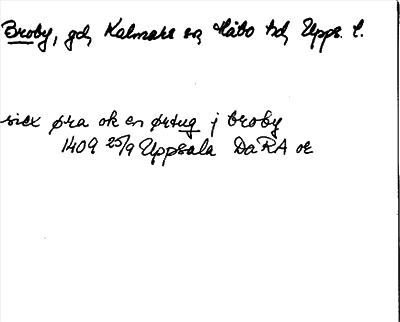 Broby, gd, Kalmars sn, Håbo hd, Upps. l.
siex øra ok en ørtug j broby
1409 25/9 Uppsala DaRA or